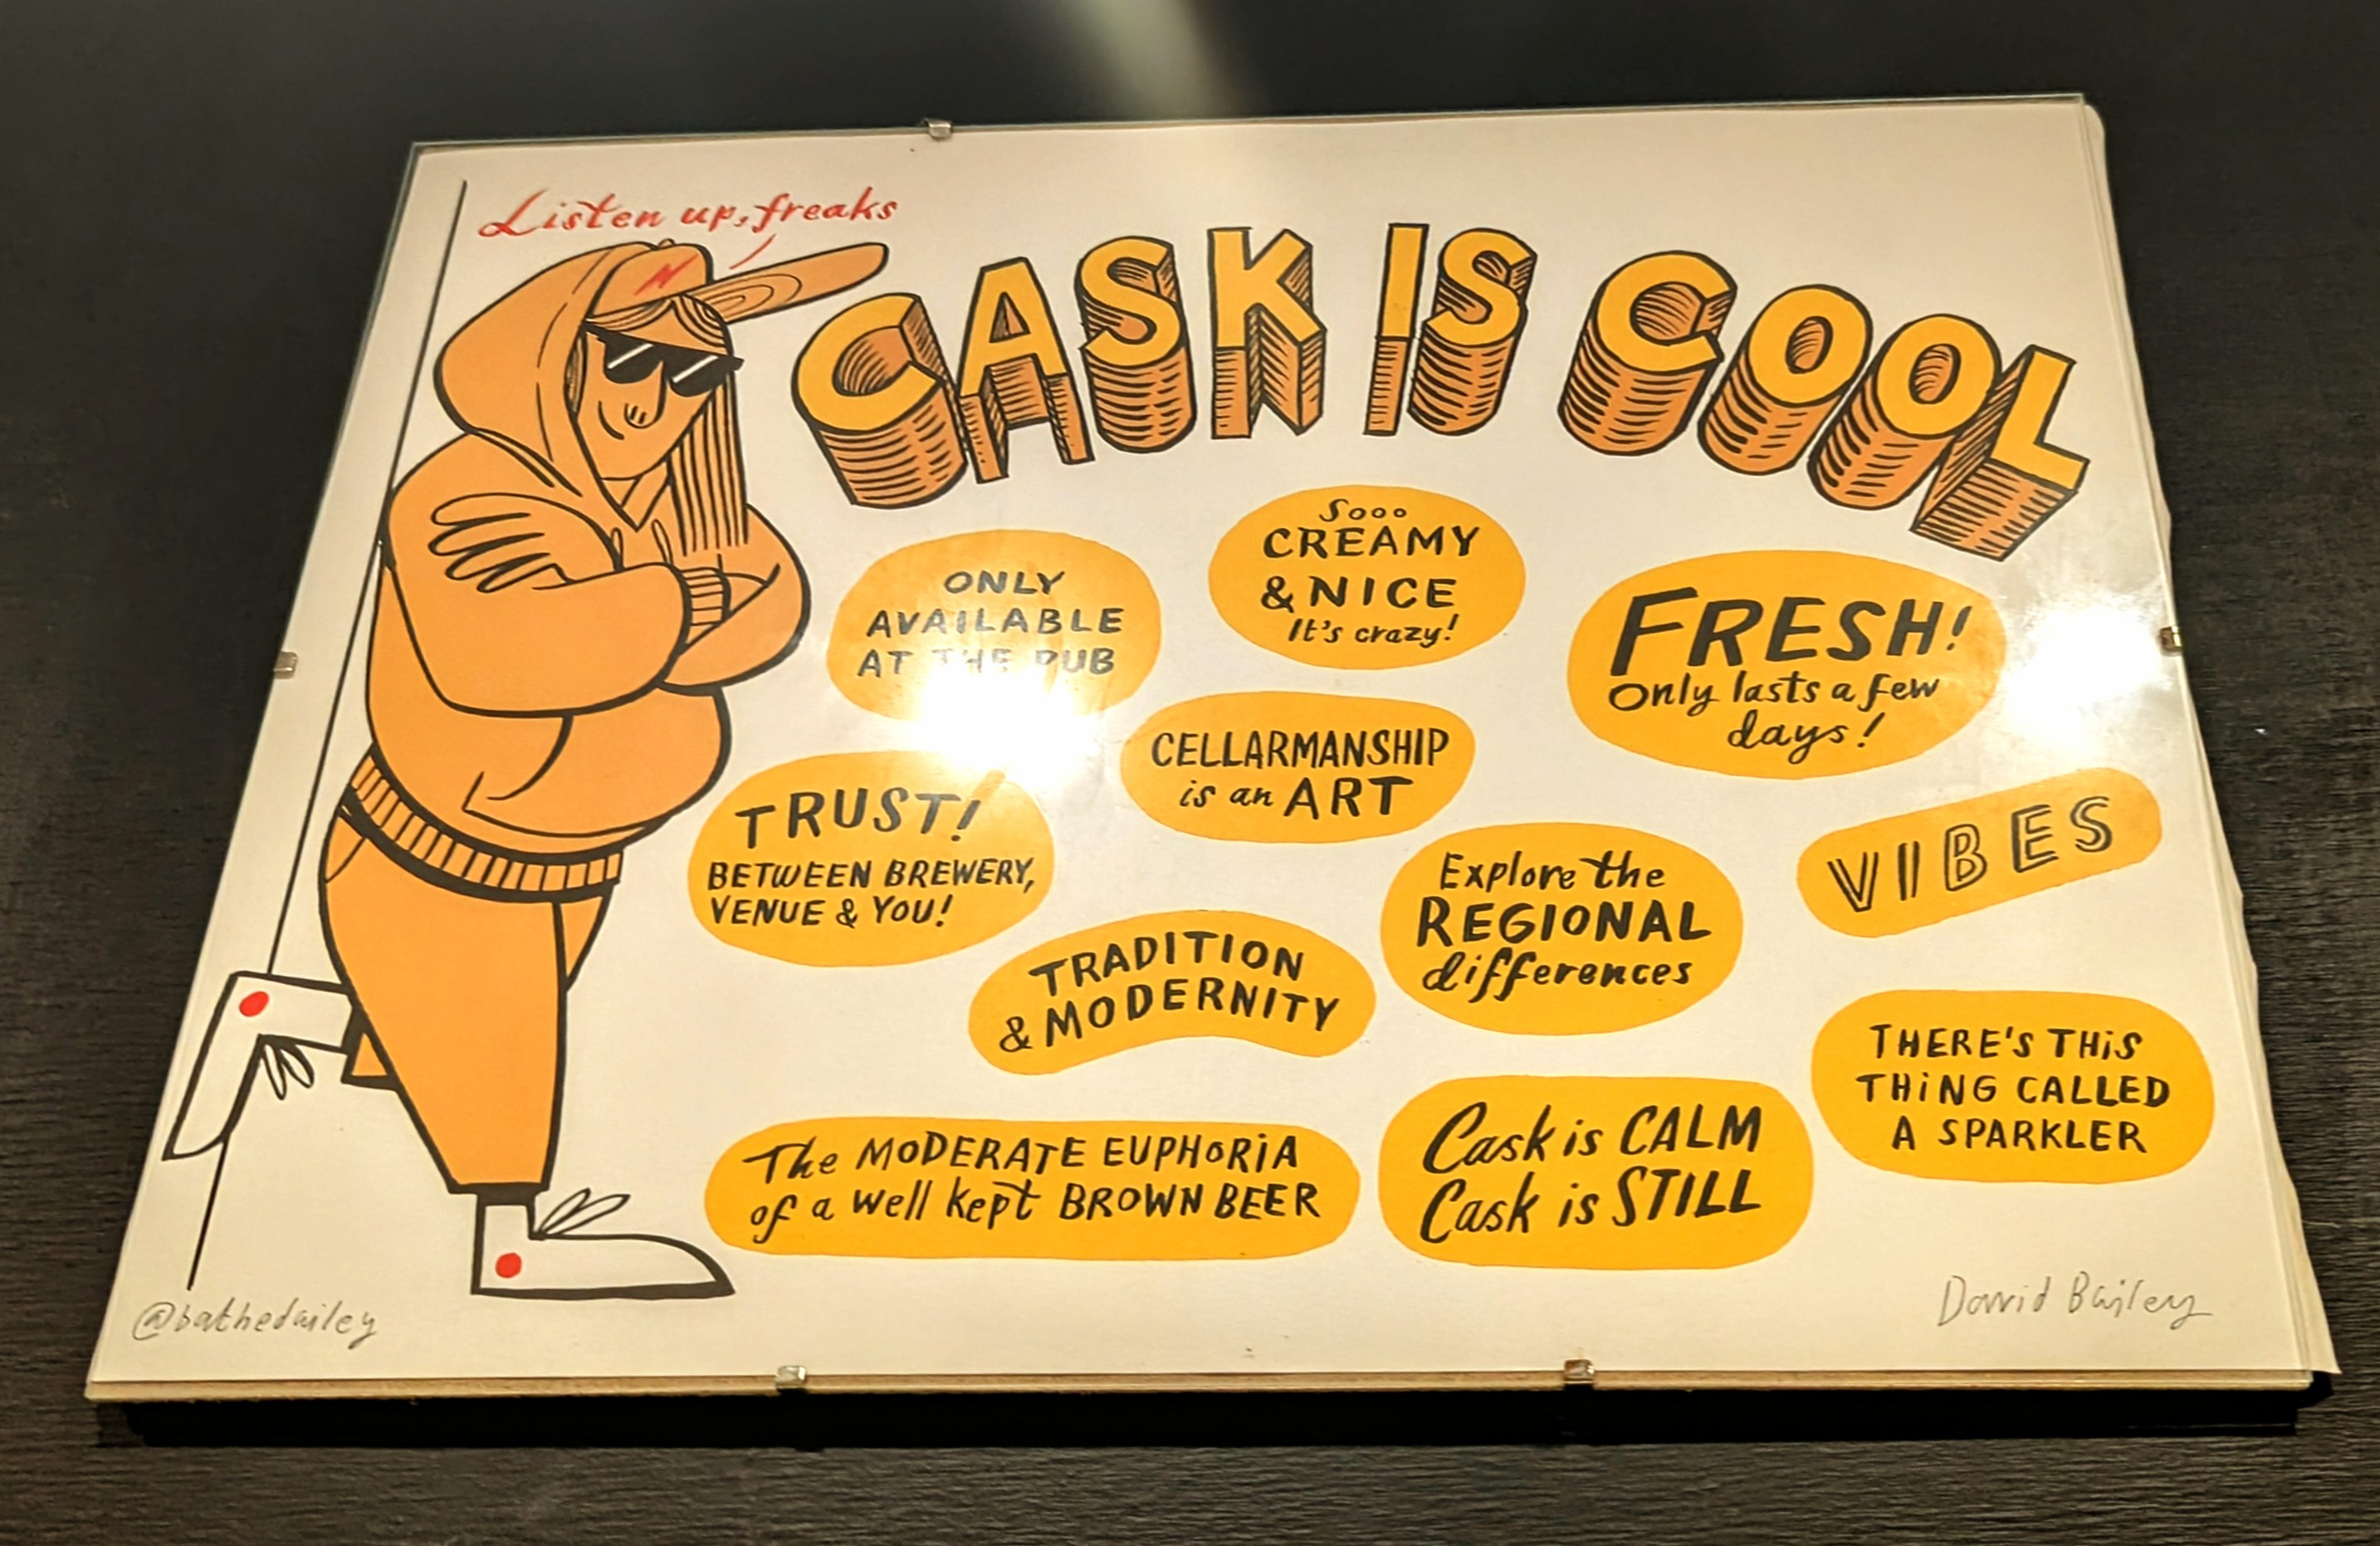 Listen up, freaks
CASK IS COOL
ONLY
AVAILABLE
AT THE PUB
Sooo
CREAMY
& NICE
It's crazy!
FRESH!
Only lasts a few
days!
CELLARMANSHIP
is an ART
TRUST!
BETWEEN BREWERY,
VENUE & YOU!
Explore the
REGIONAL
differences
VIBES
TRADITION
& MODERNITY
THERE'S THIS
THING CALLED
A SPARKLER
The MODERATE EUPHORIA
of a well kept BROWN BEER
Cask is CALM
Cask is STILL
@bathedailey
David Bailey